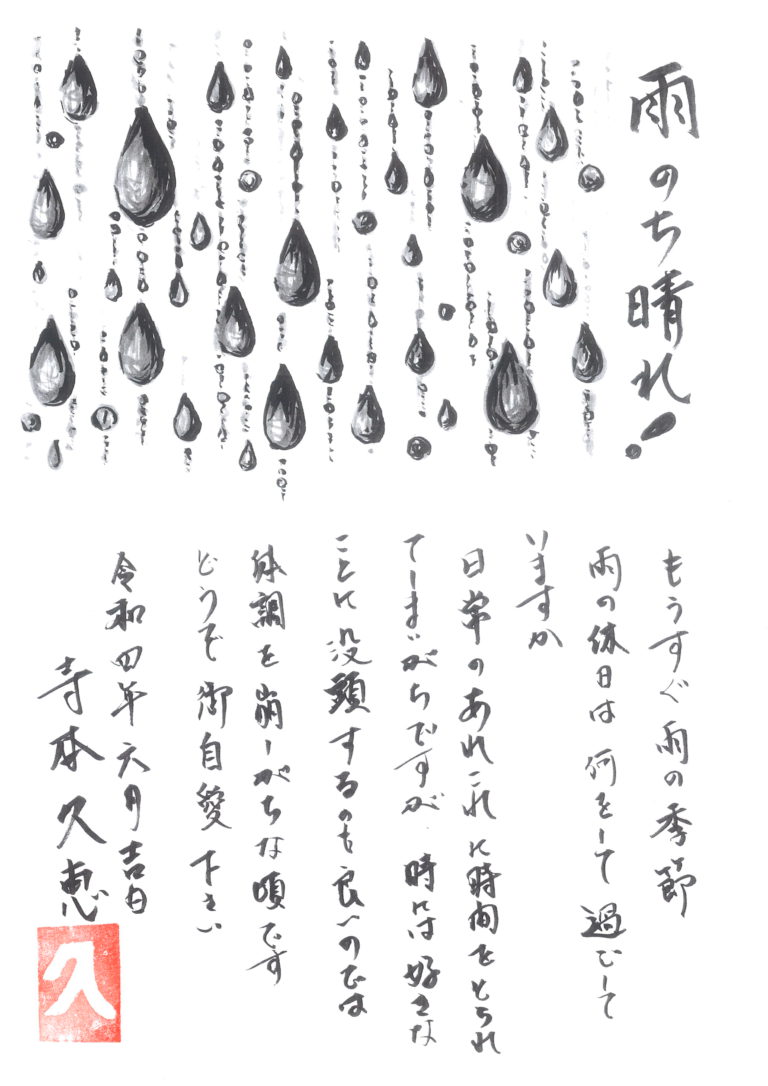 雨のち晴れ!
もうすぐ雨の季節
雨の休日は何をして過ごして
いますか
日常のあれこれに時間をとられ
てしまいがちですが、時には好きな
ことに没頭するのも良いのでは
体調を崩しがちな頃です
どうぞ御自愛下さい
令和四年六月吉日
寺本久恵
久